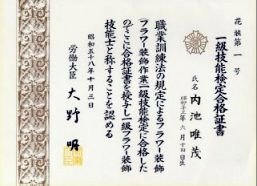 花装第一号
一級技能検定合格証書
氏名 内池唯茂
昭和十三年六月十四日生
職業訓練法の規定によるフラワー装飾
(フラワー装飾作業)一級技能検定に合格した
のでここに合格証書を授与し一級フラワー装飾
技能士と称することを認める
昭和五十八年十月三日
労働大臣 大野明